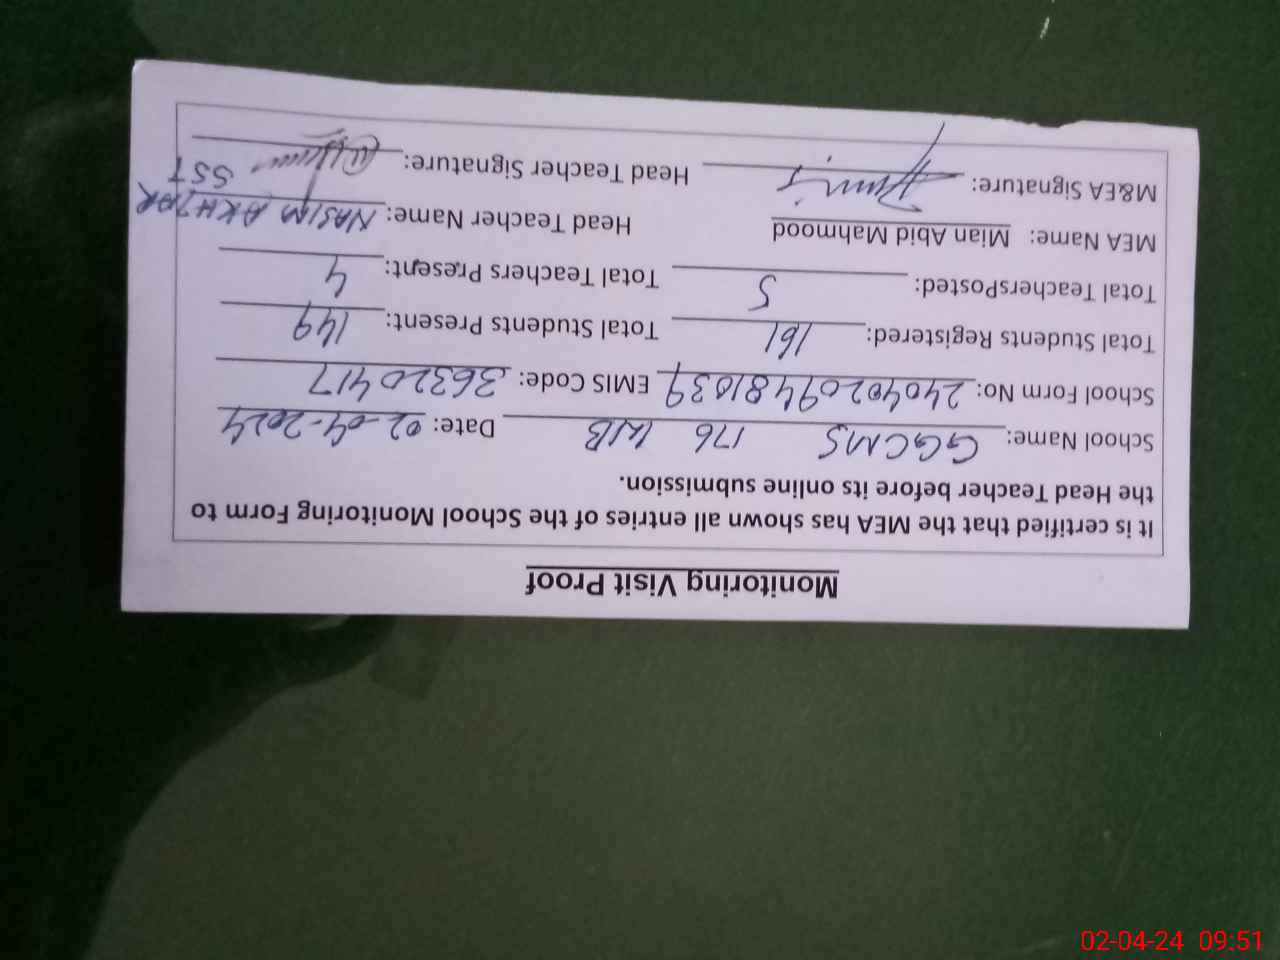 Monitoring Visit Proof
It is certified that the MEA has shown all entries of the School Monitoring Form to
the Head Teacher before its online submission.
School Name: GGCMS 176 WB Date: 02-04-2024
School Form No: 2404020948 1039 EMIS Code: 36320417
Total Students Registered: 161 Total Students Present: 149
Total TeachersPosted: 5 Total Teachers Present: 4
MEA Name: Mian Abid Mahmood Head Teacher Name: NASIM AKHTAR
SST
M&EA Signature: Head Teacher Signature:
02-04-24 09:51